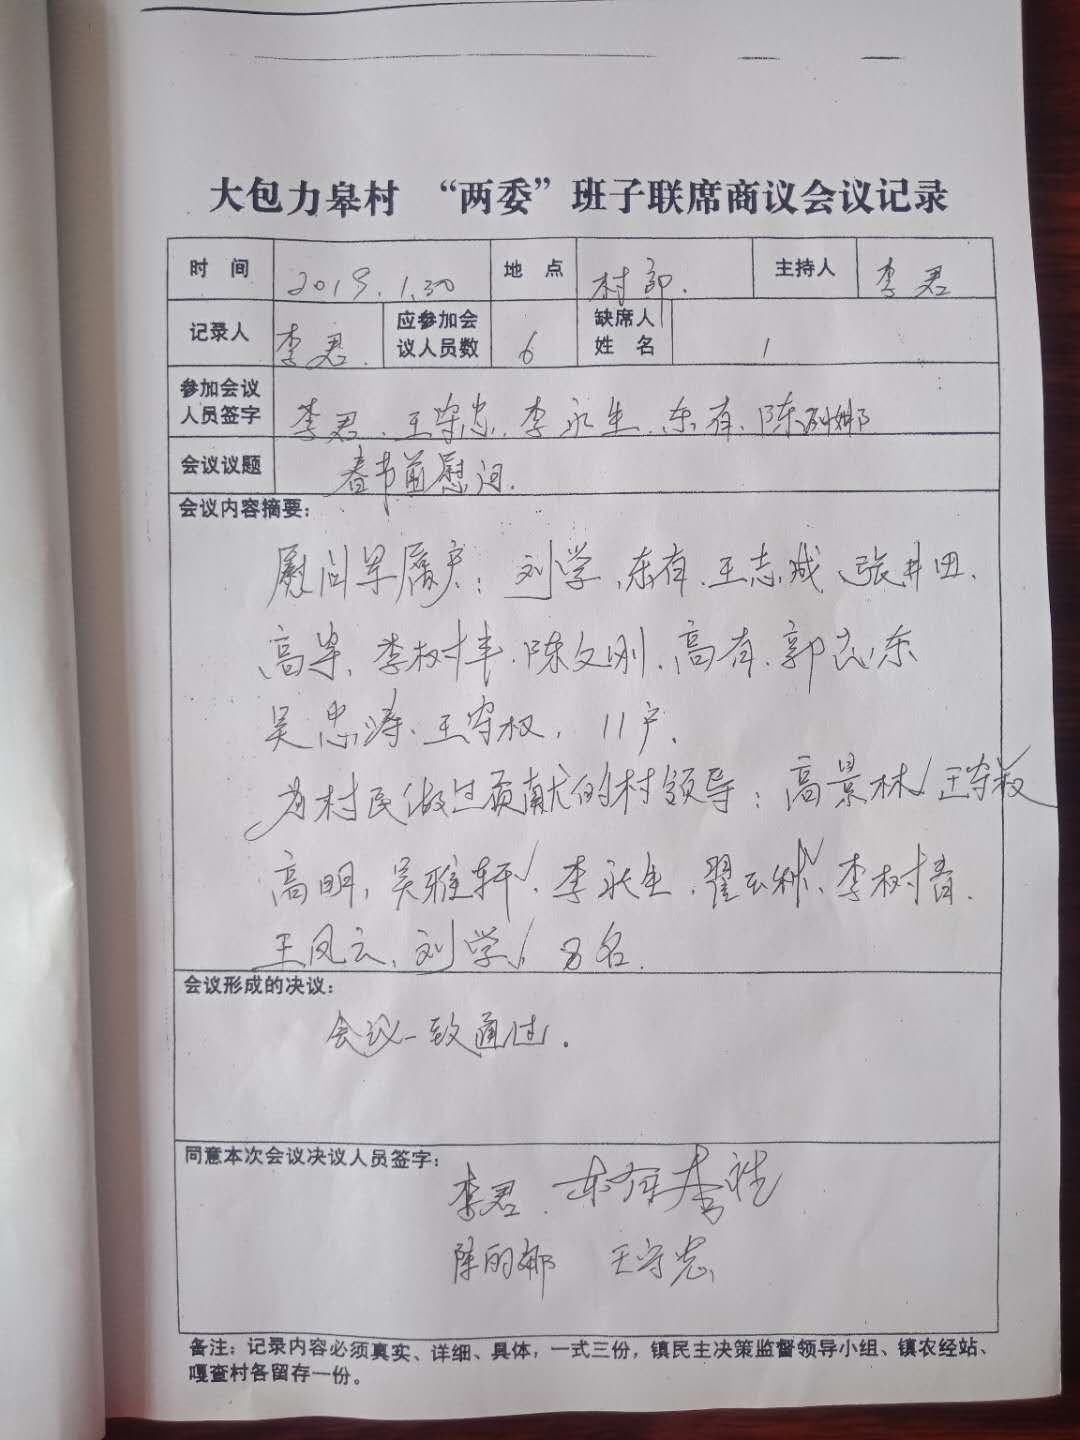 大包力皋村 “两委”班子联席商议会议记录
时 间 2019.1.30 地 点 村部. 主持人 李君
记录人 李君. 应参加会议人员数 6 缺席人姓名 1
参加会议人员签字 李君.王守忠.李永生.东有.陈丽娜
会议议题 春节前慰问.
会议内容摘要:
慰问军属户:刘学.东有.王志成.张井田.
高军.李树丰.陈文刚.高有.郭志东
吴忠涛.王守权. 11户.
为村民做过贡献的村领导:高景林√王守权
高明.吴雅轩√.李永生.翟云林√.李树春.
王凤云.刘学√ 9名.
会议形成的决议:
会议一致通过.
同意本次会议决议人员签字:
李君. 东有 李
陈丽娜 王守忠
备注:记录内容必须真实、详细、具体,一式三份,镇民主决策监督领导小组、镇农经站、
嘎查村各留存一份。